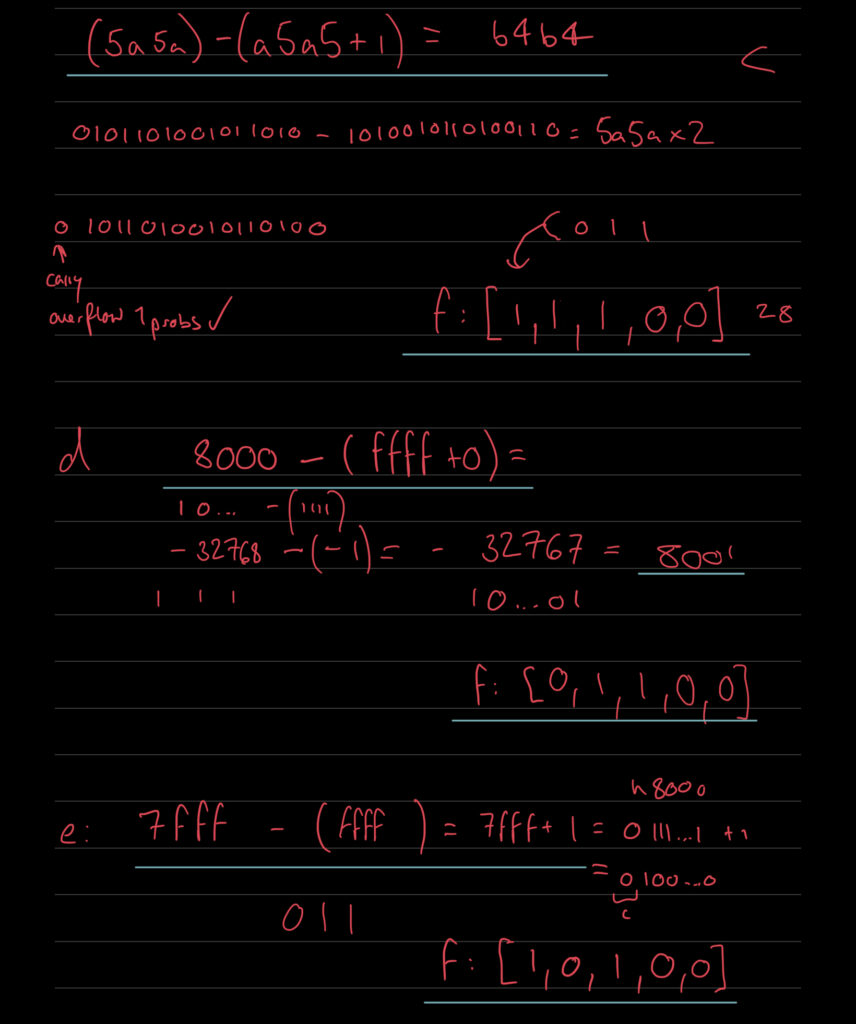 (5a5a) - (a5a5+1) = b4b4
0101101001011010 - 1010010110100110 = 5a5a x 2
0 1011010010110100
0 1 1
carry
overflow 1 probs ✓
f: [1, 1, 1, 0, 0] 28
d 8000 - (ffff +0) =
10... - (1111)
-32768 - (-1) = - 32767 = 8001
1 1 1 10...01
f: [0, 1, 1, 0, 0]
h8000
e: 7fff - (ffff) = 7fff + 1 = 0 111...1 + 1
= 0 100...0
c
0 1 1
f: [1, 0, 1, 0, 0]